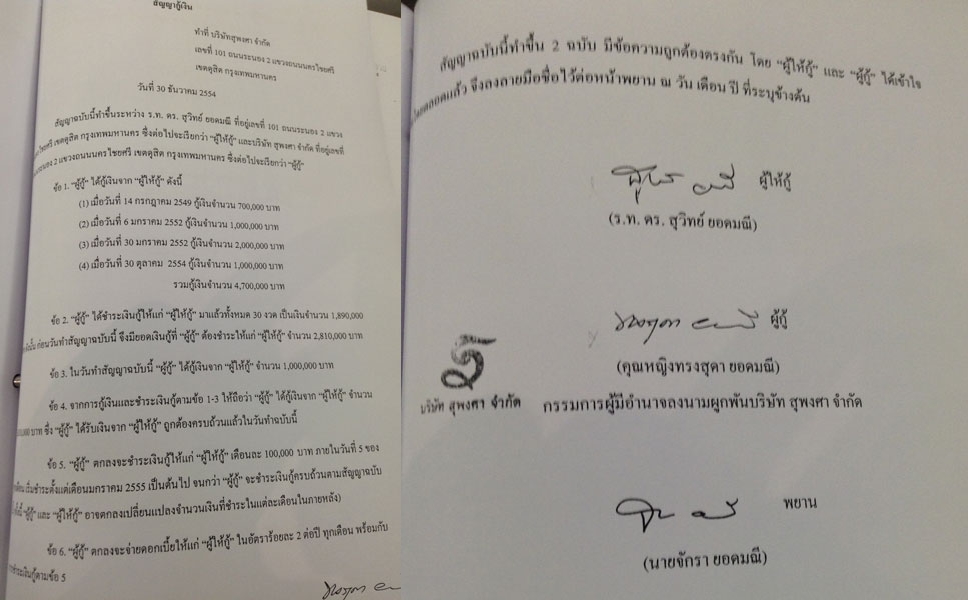 สัญญากู้เงิน
ทำที่ บริษัทสุพงศา จำกัด
เลขที่ 101 ถนนระนอง 2 แขวงถนนนครไชยศรี
เขตดุสิต กรุงเทพมหานคร
วันที่ 30 ธันวาคม 2554
สัญญาฉบับนี้ทำขึ้นระหว่าง ร.ท. ดร. สุวิทย์ ยอดมณี ที่อยู่เลขที่ 101 ถนนระนอง 2 แขวง
เขตดุสิต กรุงเทพมหานคร ซึ่งต่อไปจะเรียกว่า "ผู้ให้กู้" และบริษัท สุพงศา จำกัด ที่อยู่เลขที่
2 แขวงถนนนครไชยศรี เขตดุสิต กรุงเทพมหานคร ซึ่งต่อไปจะเรียกว่า "ผู้กู้"
ข้อ 1. "ผู้กู้" ได้กู้เงินจาก "ผู้ให้กู้" ดังนี้
(1) เมื่อวันที่ 14 กรกฎาคม 2549 กู้เงินจำนวน 700,000 บาท
(2) เมื่อวันที่ 6 มกราคม 2552 กู้เงินจำนวน 1,000,000 บาท
(3) เมื่อวันที่ 30 มกราคม 2552 กู้เงินจำนวน 2,000,000 บาท
(4) เมื่อวันที่ 30 ตุลาคม 2554 กู้เงินจำนวน 1,000,000 บาท
รวมกู้เงินจำนวน 4,700,000 บาท
ข้อ 2. "ผู้กู้" ได้ชำระเงินกู้ให้แก่ "ผู้ให้กู้" มาแล้วทั้งหมด 30 งวด เป็นเงินจำนวน 1,890,000
ก่อนวันทำสัญญาฉบับนี้ จึงมียอดเงินกู้ที่ "ผู้กู้" ต้องชำระให้แก่ "ผู้ให้กู้" จำนวน 2,810,000 บาท
ข้อ 3. ในวันทำสัญญาฉบับนี้ "ผู้กู้" ได้กู้เงินจาก "ผู้ให้กู้" จำนวน 1,000,000 บาท
ข้อ 4. จากการกู้เงินและชำระเงินกู้ตามข้อ 1-3 ให้ถือว่า "ผู้กู้" ได้กู้เงินจาก "ผู้ให้กู้" จำนวน
บาท ซึ่ง "ผู้กู้" ได้รับเงินจาก "ผู้ให้กู้" ถูกต้องครบถ้วนแล้วในวันทำสัญญาฉบับนี้
ข้อ 5. "ผู้กู้" ตกลงจะชำระเงินกู้ให้แก่ "ผู้ให้กู้" เดือนละ 100,000 บาท ภายในวันที่ 5 ของ
เริ่มชำระตั้งแต่เดือนมกราคม 2555 เป็นต้นไป จนกว่า "ผู้กู้" จะชำระเงินกู้ครบถ้วนตามสัญญาฉบับ
"ผู้กู้" และ "ผู้ให้กู้" อาจตกลงเปลี่ยนแปลงจำนวนเงินที่ชำระในแต่ละเดือนในภายหลัง)
ข้อ 6. "ผู้กู้" ตกลงจะจ่ายดอกเบี้ยให้แก่ "ผู้ให้กู้" ในอัตราร้อยละ 2 ต่อปี ทุกเดือน พร้อมกับ
ชำระเงินกู้ตามข้อ 5
สัญญาฉบับนี้ทำขึ้น 2 ฉบับ มีข้อความถูกต้องตรงกัน โดย "ผู้ให้กู้" และ "ผู้กู้" ได้เข้าใจ
โดยตลอดแล้ว จึงลงลายมือชื่อไว้ต่อหน้าพยาน ณ วัน เดือน ปี ที่ระบุข้างต้น
ผู้ให้กู้
(ร.ท. ดร. สุวิทย์ ยอดมณี)
ผู้กู้
(คุณหญิงทรงสุดา ยอดมณี)
บริษัท สุพงศา จำกัด กรรมการผู้มีอำนาจลงนามผูกพันบริษัท สุพงศา จำกัด
พยาน
(นายจักรา ยอดมณี)